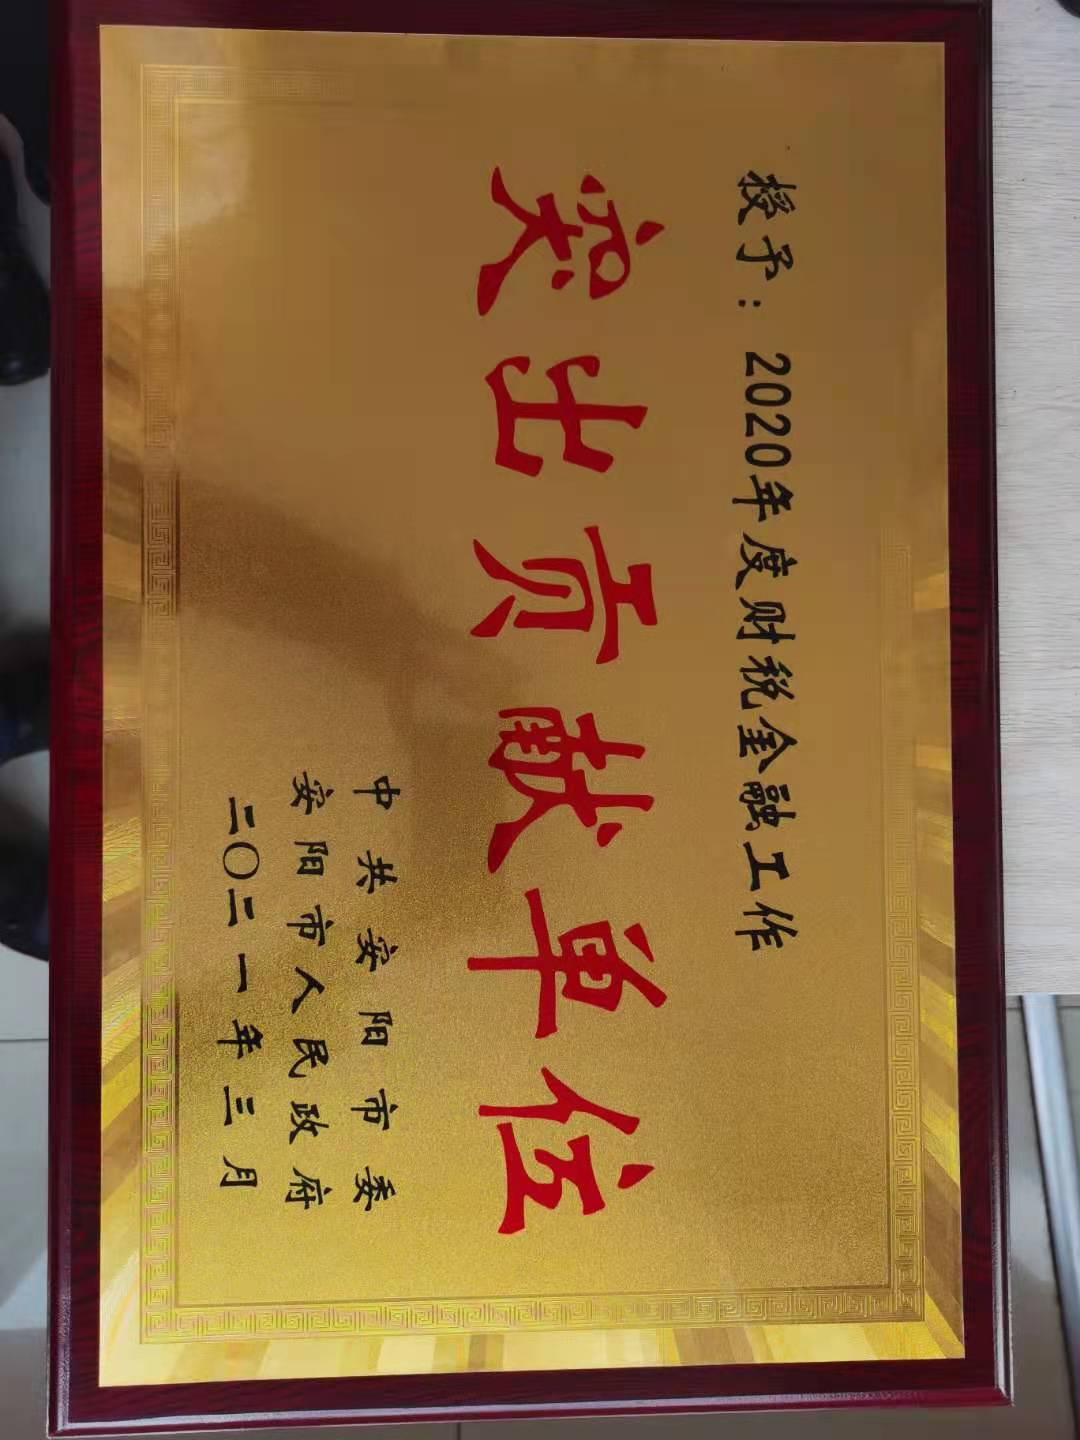 授予：2020年度财税金融工作
突出贡献单位
中共安阳市委
安阳市人民政府
二〇二一年三月